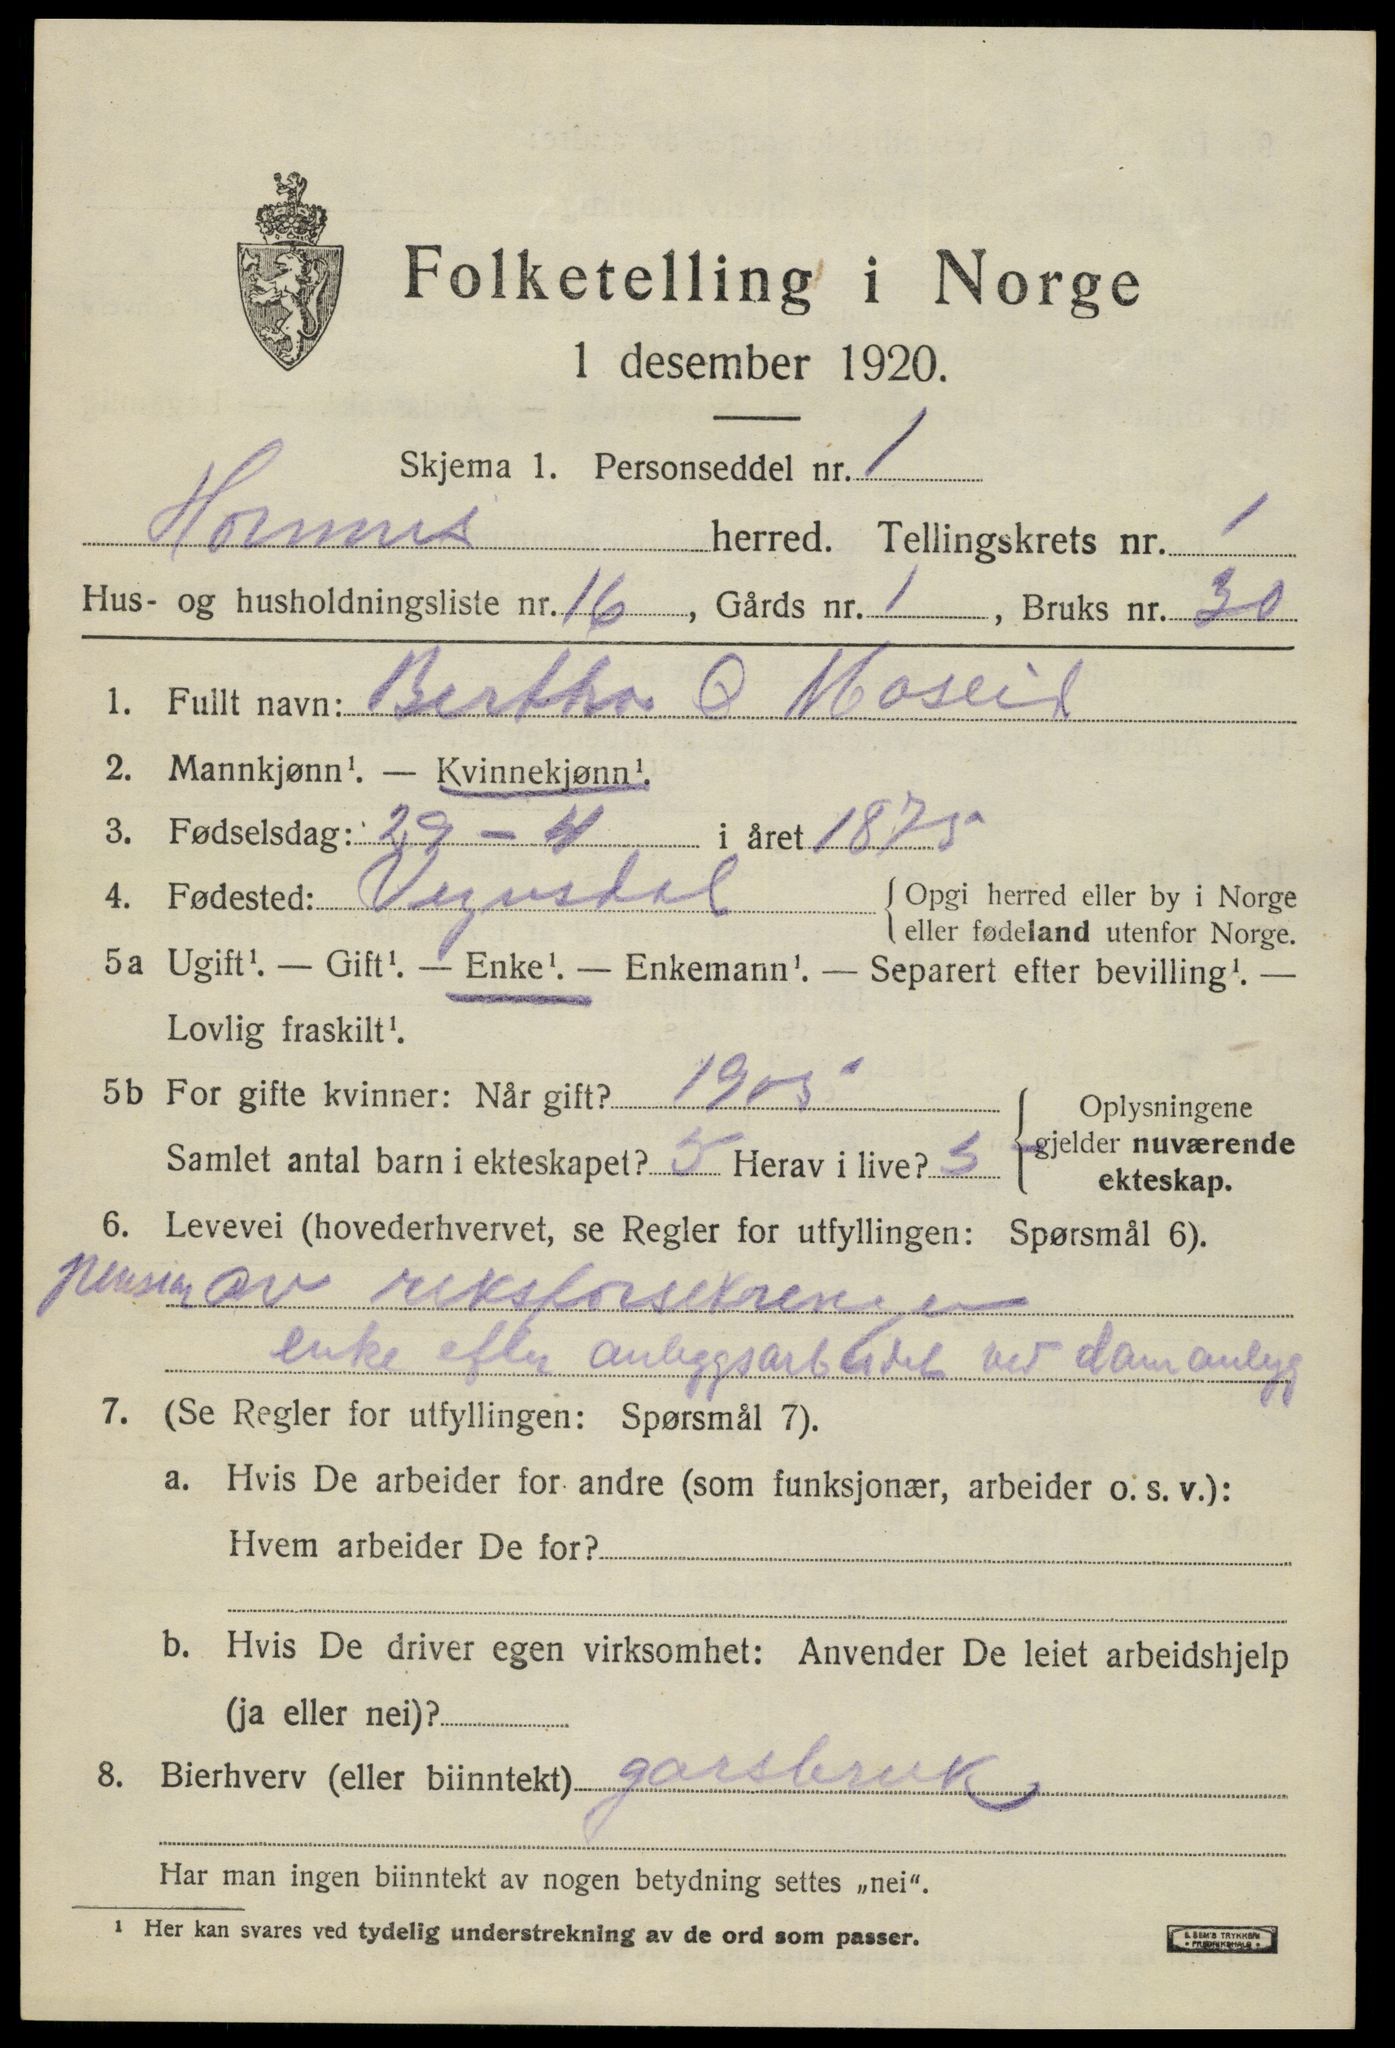 Folketelling i Norge
1 desember 1920.
Skjema 1. Personseddel nr. 1
Hornnes herred. Tellingskrets nr. 1
Hus- og husholdningsliste nr. 16, Gårds nr. 1, Bruks nr. 30
1. Fullt navn: Bertha O Moseid
2. Mannkjønn¹. — Kvinnekjønn¹.
3. Fødselsdag: 29 - 4 i året 1875
4. Fødested: Vegusdal { Opgi herred eller by i Norge
eller fødeland utenfor Norge.
5a Ugift¹. — Gift¹. — Enke¹. — Enkemann¹. — Separert efter bevilling¹. —
Lovlig fraskilt¹.
5b For gifte kvinner: Når gift? 1905 { Oplysningene
Samlet antal barn i ekteskapet? 5 Herav i live? 5 gjelder nuværende
ekteskap.
6. Levevei (hovederhvervet, se Regler for utfyllingen: Spørsmål 6).
pension av riksforsekringen
enke efter anleggsarbeider ved damanlegg
7. (Se Regler for utfyllingen: Spørsmål 7).
a. Hvis De arbeider for andre (som funksjonær, arbeider o. s. v.):
Hvem arbeider De for?
b. Hvis De driver egen virksomhet: Anvender De leiet arbeidshjelp
(ja eller nei)?
8. Bierhverv (eller biinntekt) garsbruk
Har man ingen biinntekt av nogen betydning settes „nei“.
¹ Her kan svares ved tydelig understrekning av de ord som passer.
E. SEM'S TRYKKERI
• FREDRIKSHALD •